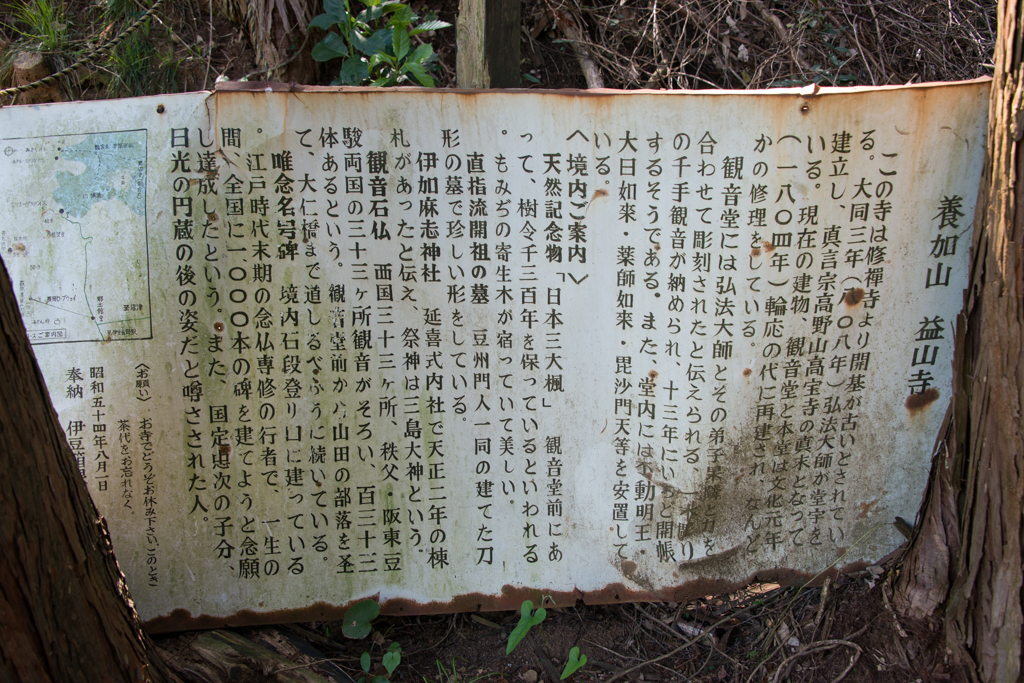 養加山　益山寺
この寺は修禪寺より開基が古いとされてい
る。大同三年（八〇八年）弘法大師が堂宇を
建立し、真言宗高野山高宝寺の真末となって
いる。現在の建物、観音堂と本堂は文化元年
（一八〇四年）輪応の代に再建され、なんど
かの修理をしている。
観音堂には弘法大師とその弟子果隣と力を
合わせて彫刻されたと伝えられる、一木
の千手観音が納められ、十三年にいちど開帳
するそうである。また、堂内には不動明王・
大日如来・薬師如来・毘沙門天等を安置して
いる。
〈境内ご案内〉
天然記念物「日本三大楓」　観音堂前にあ
って、樹令千三百年を保っているといわれる
。もみぢの寄生木が宿っていて美しい。
直指流開祖の墓　豆州門人一同の建てた刀
形の墓で珍しい形をしている。
伊加麻志神社　延喜式内社で天正二年の棟
札があったと伝え、祭神は三島大神という。
観音石仏　西国三十三ヶ所、秩父・阪東・豆
駿両国の三十三ヶ所観音がそろい、百三十三
体あるという。観音堂前から山田の部落を圣
て、大仁橋まで道しるべふうに続いている。
唯念名号碑　境内石段登り口に建っている
。江戸時代末期の念仏専修の行者で、一生の
間、全国に一〇〇〇本の碑を建てようと念願
し達成したという。また、国定忠次の子分、
日光の円蔵の後の姿だと噂さされた人。
〈お願い〉　お寺でどうぞお休み下さい。このとき
茶代をお忘れなく。
昭和五十四年八月一日
奉納　伊豆